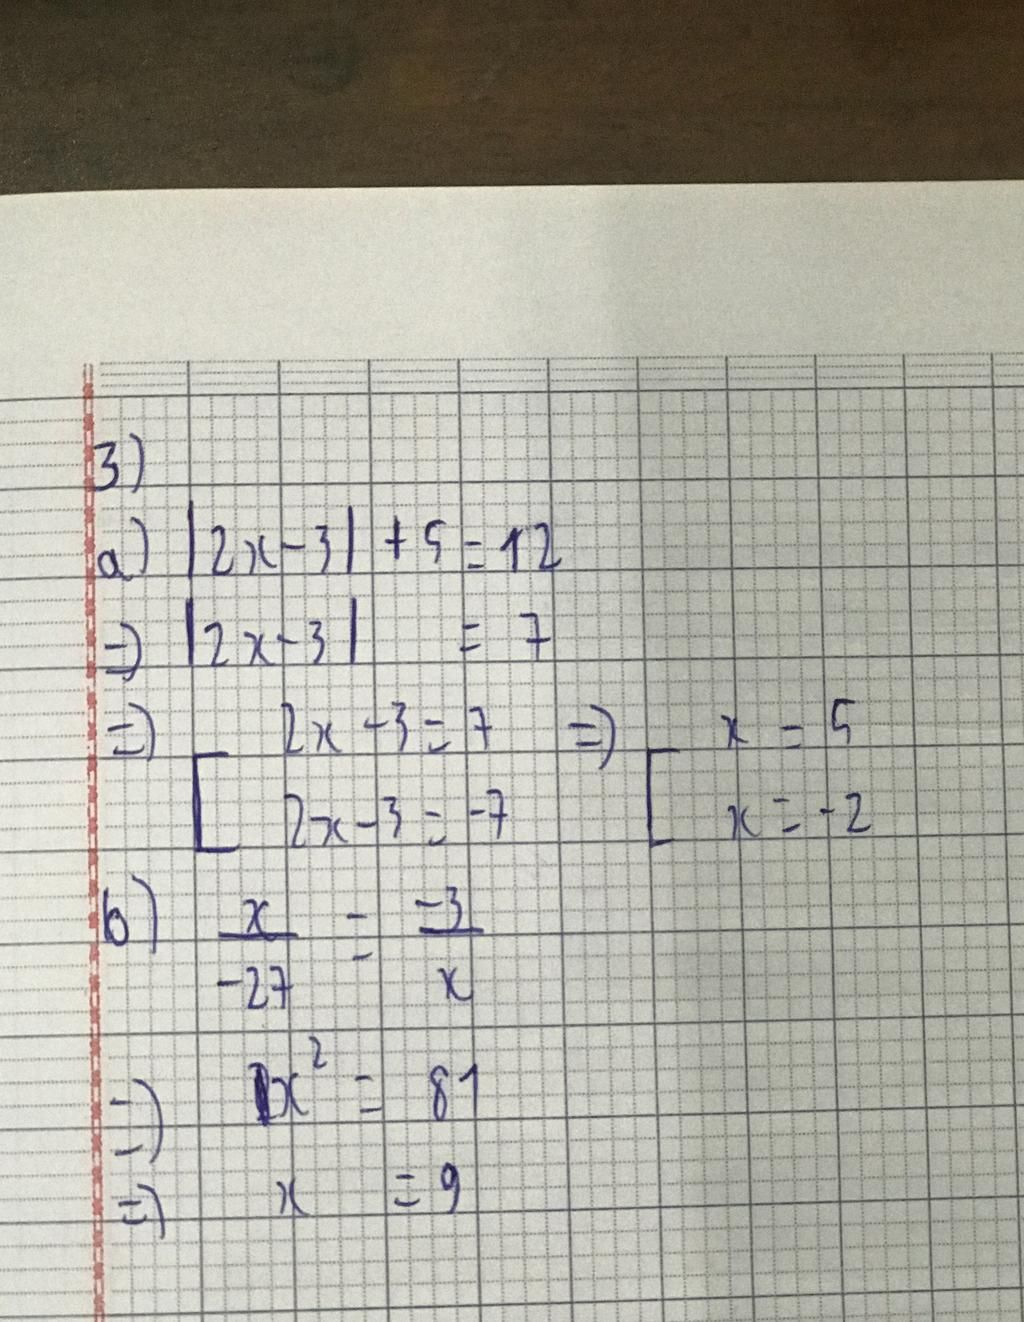 3)
a) |2x-3| + 5 = 12
=) |2x-3| = 7
=) [ 2x-3 = 7 =) [ x = 5
2x-3 = -7 x = -2
b) x/-27 = -3/x
=) x² = 81
=) x = 9